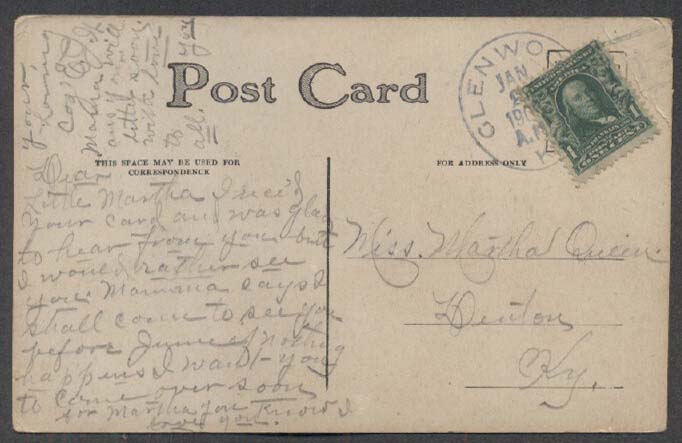 Post Card
THIS SPACE MAY BE USED FOR
CORRESPONDENCE
FOR ADDRESS ONLY
GLENWO
JAN
190
A.M.
K
Dear
little Martha I rec'd
your card and was glad
to hear from you but
I would rather see
you. Mamma says I
shall come to see you
before June if nothing
happens I want you
to come over soon
for Martha you know I
love you.
Your
loving
Martha
will
little
soon
with love
to
all.
Miss. Martha Queen.
Denton
Ky.
1
1